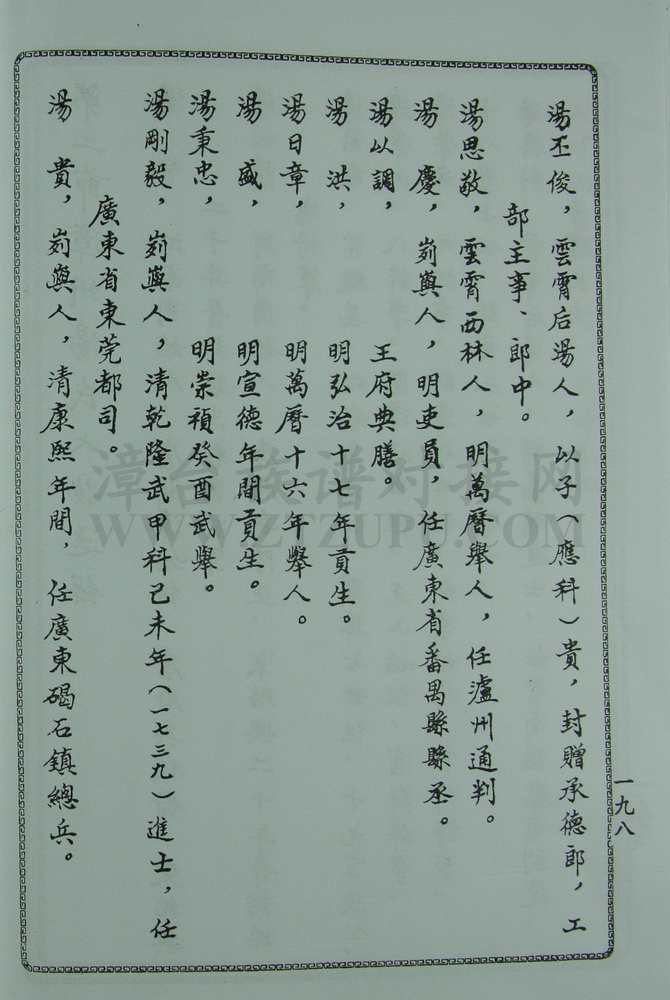 湯丕俊，雲霄后湯人，以子（應科）貴，封贈承德郎，工
部主事、郎中。
湯思敬，雲霄西林人，明萬曆舉人，任瀘州通判。
湯慶，峛嶼人，明吏員，任廣東省番禺縣縣丞。
湯以調，王府典膳。
湯洪，明弘治十七年貢生。
湯日章，明萬曆十六年舉人。
湯盛，明宣德年間貢生。
湯秉忠，明崇禎癸酉武舉。
湯剛毅，峛嶼人，清乾隆武甲科己未年（一七三九）進士，任
廣東省東莞都司。
湯貴，峛嶼人，清康熙年間，任廣東碣石鎮總兵。
一九八
漳台族谱对接网
WWW.ZTZUPU.COM